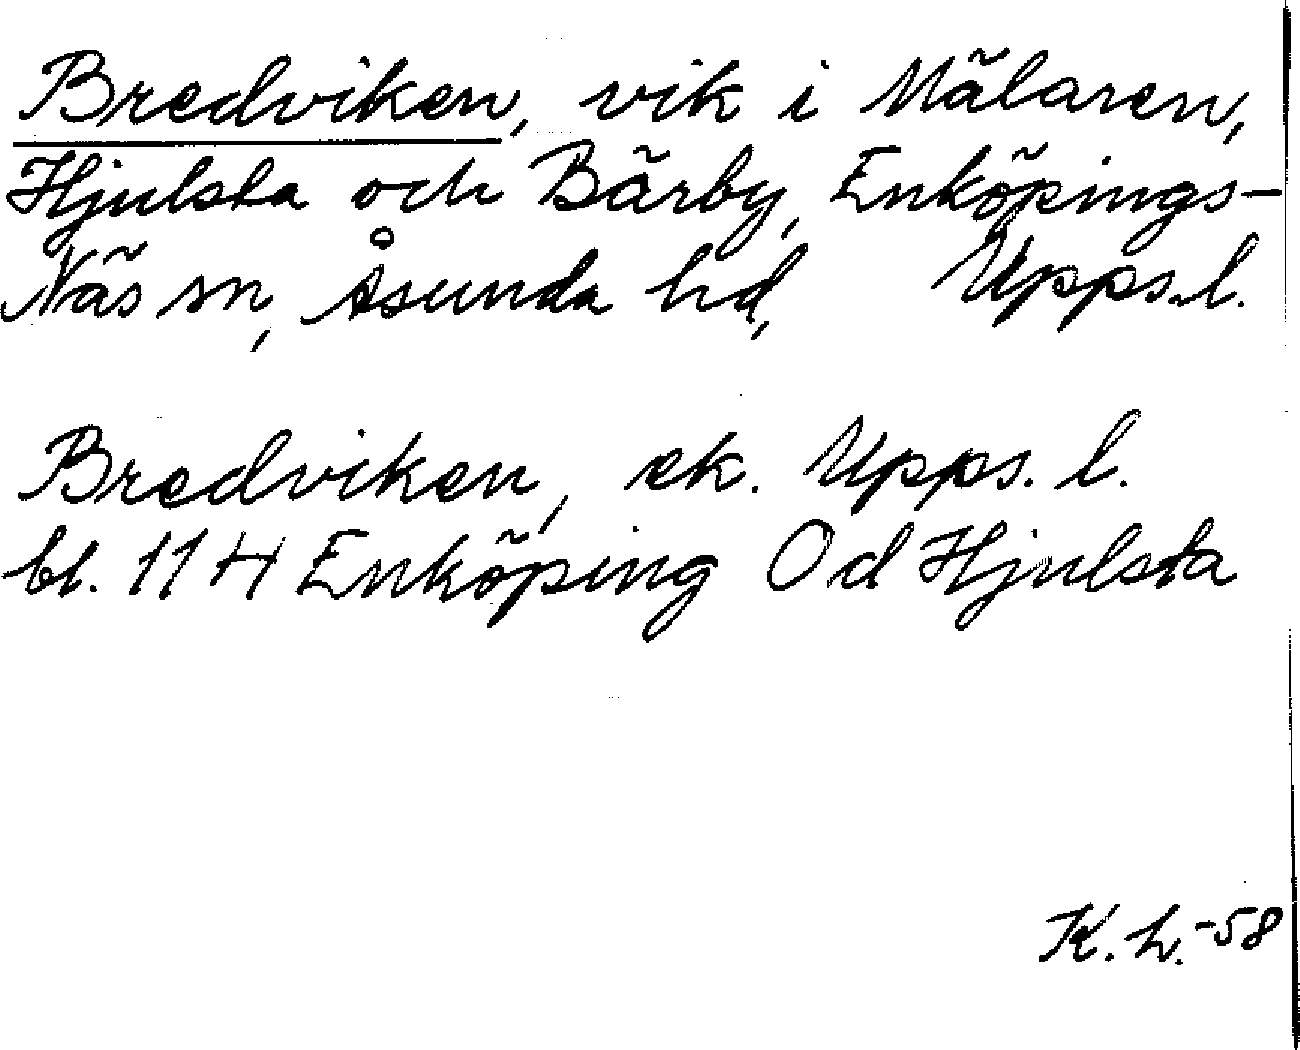 Bredviken, vik i Mälaren,
Hjulsta och Bärby, Enköpings-
Näs sn, Åsunda hd, Upps. l.
Bredviken, ek. Upps. l.
bl. 114 Enköping Od Hjulsta
K. L. -58